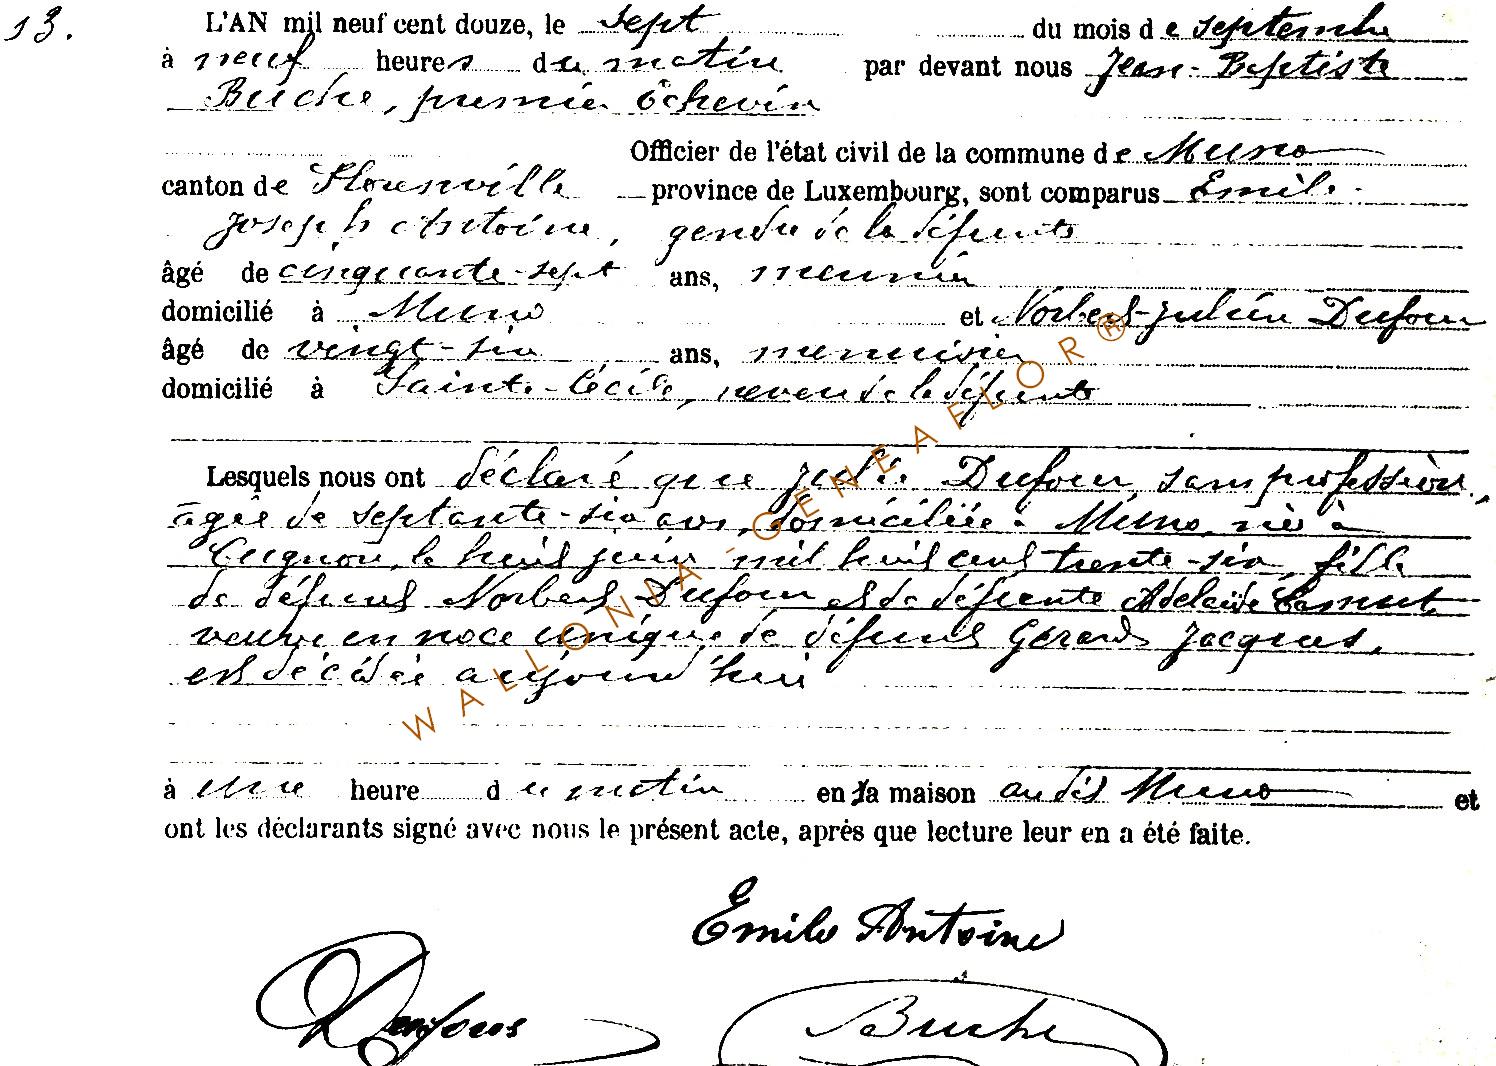 13.
L'AN mil neuf cent douze, le sept du mois de septembre
à neuf heures du matin par devant nous Jean-Baptiste
Buche, premier Échevin
Officier de l'état civil de la commune de Muno
canton de Florenville province de Luxembourg, sont comparus Emile
Joseph Antoine, gendre de la défunte
âgé de cinquante-sept ans, meunier
domicilié à Muno et Norbert-Julien Dufour
âgé de vingt-six ans, menuisier
domicilié à Sainte-Cécile, neveu de la défunte
Lesquels nous ont déclaré que Julie Dufour, sans profession,
âgée de septante-six ans, domiciliée à Muno, née à
Cugnon, le huit juin mil huit cent trente-six, fille
de défunt Norbert Dufour et de défunte Adelaïde
veuve en noce unique de défunt Gérard Jacques,
est décédée aujourd'hui
à une heure du matin en sa maison audit Muno et
ont les déclarants signé avec nous le présent acte, après que lecture leur en a été faite.
Emile Antoine
Dufour
Buche
WALLONIA - GENEAFLOR®